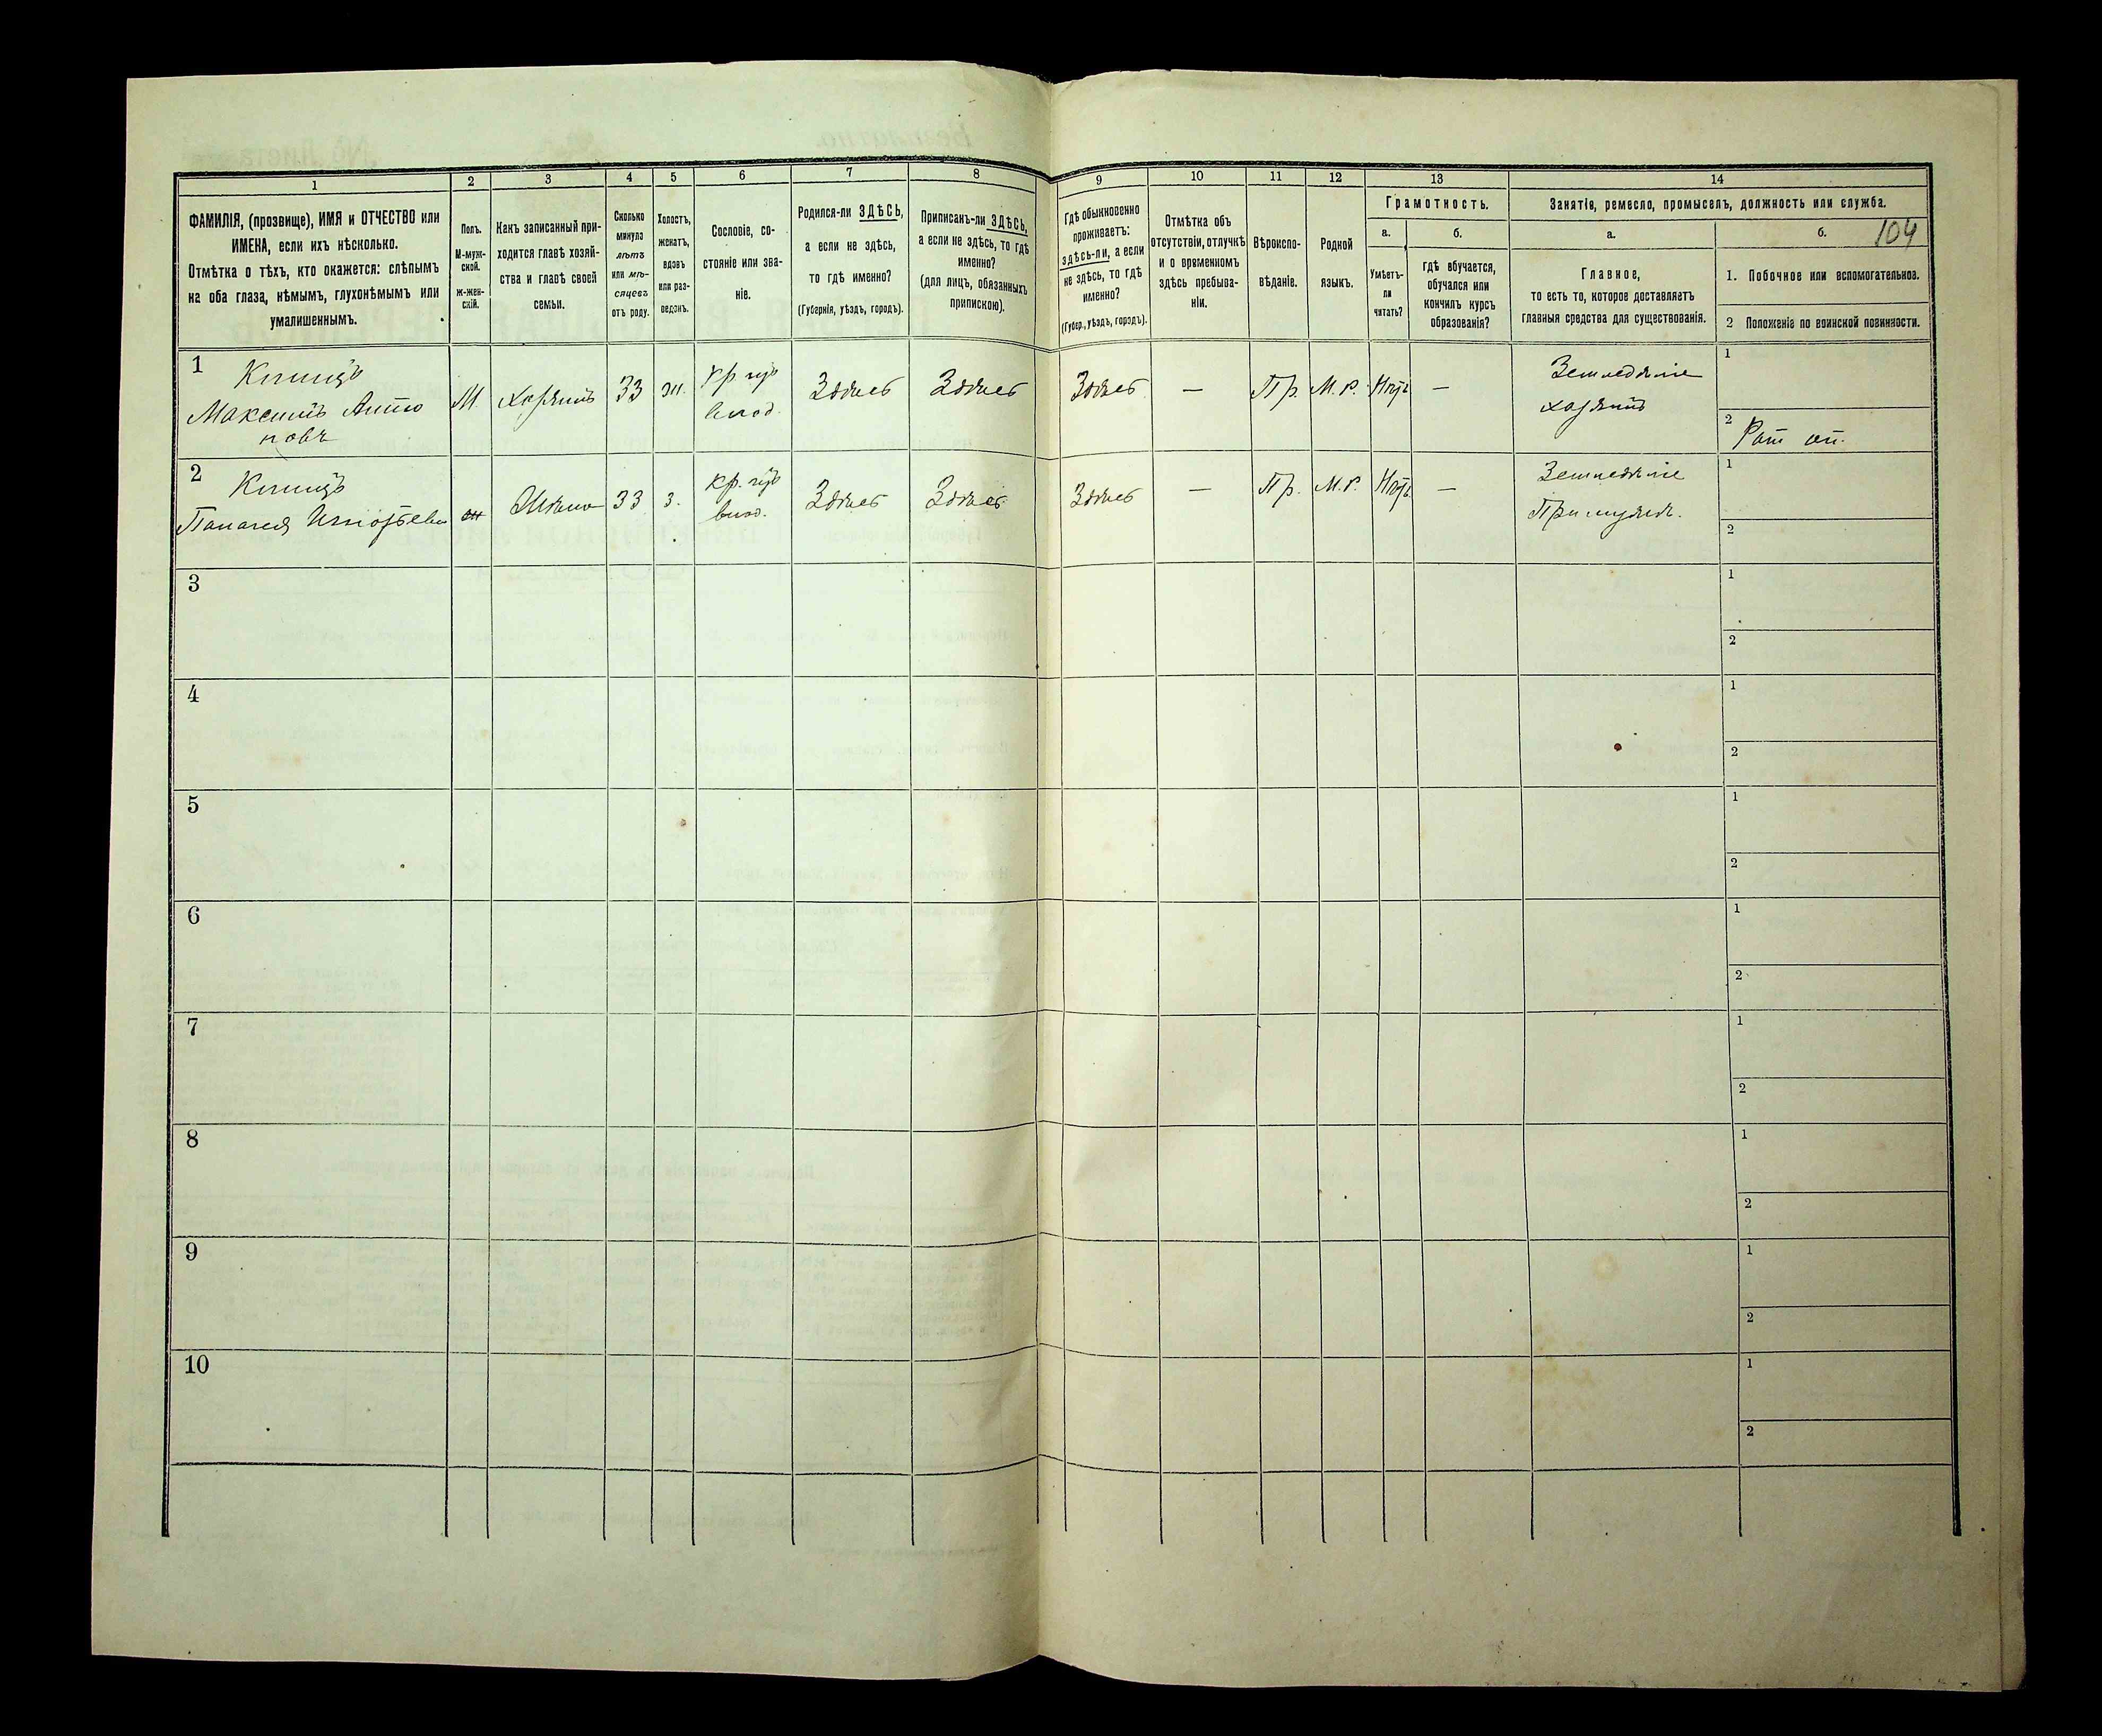 1
2
3
4
5
6
7
8
9
10
11
12
13
14
ФАМИЛІЯ, (прозвище), ИМЯ и ОТЧЕСТВО или
ИМЕНА, если ихъ нѣсколько.
Отмѣтка о тѣхъ, кто окажется: слѣпымъ
на оба глаза, нѣмымъ, глухонѣмымъ или
умалишеннымъ.
Полъ.
М-муж-
ской.
ж-жен-
скій.
Какъ записанный при-
ходится главѣ хозяй-
ства и главѣ своей
семьи.
Сколько
минуло
лѣтъ
или мѣ-
сяцевъ
отъ роду.
Холостъ,
женатъ,
вдовъ
или раз-
веденъ.
Сословіе, со-
стояніе или зва-
ніе.
Родился-ли ЗДѢСЬ,
а если не здѣсь,
то гдѣ именно?
(Губернія, уѣздъ, городъ).
Приписанъ-ли ЗДѢСЬ,
а если не здѣсь, то гдѣ
именно?
(для лицъ, обязанныхъ
припискою).
Гдѣ обыкновенно
проживаетъ:
здѣсь-ли, а если
не здѣсь, то гдѣ
именно?
(Губер., уѣздъ, городъ).
Отмѣтка объ
отсутствіи, отлучкѣ
и о временномъ
здѣсь пребыва-
ніи.
Вѣроиспо-
вѣданіе.
Родной
языкъ.
Грамотность.
а.
Умѣетъ-
ли
читать?
б.
гдѣ обучается,
обучался или
кончилъ курсъ
образованія?
Занятіе, ремесло, промыселъ, должность или служба.
а.
Главное,
то есть то, которое доставляетъ
главныя средства для существованія.
б.
104
1. Побочное или вспомогательное.
2 Положеніе по воинской повинности.
1
Максимъ Анто
новъ
М.
Хозяинъ
33
ж.
Здѣсь
Здѣсь
Здѣсь
—
Пр.
М. Р.
Нѣтъ
—
Земледѣліе
хозяинъ
1
2 Рат оп.
2
ж
Жена
33
з.
Здѣсь
Здѣсь
Здѣсь
—
Пр.
М. Р.
Нѣтъ
—
Земледѣліе
При мужѣ.
1
2
3
1
2
4
1
2
5
1
2
6
1
2
7
1
2
8
1
2
9
1
2
10
1
2